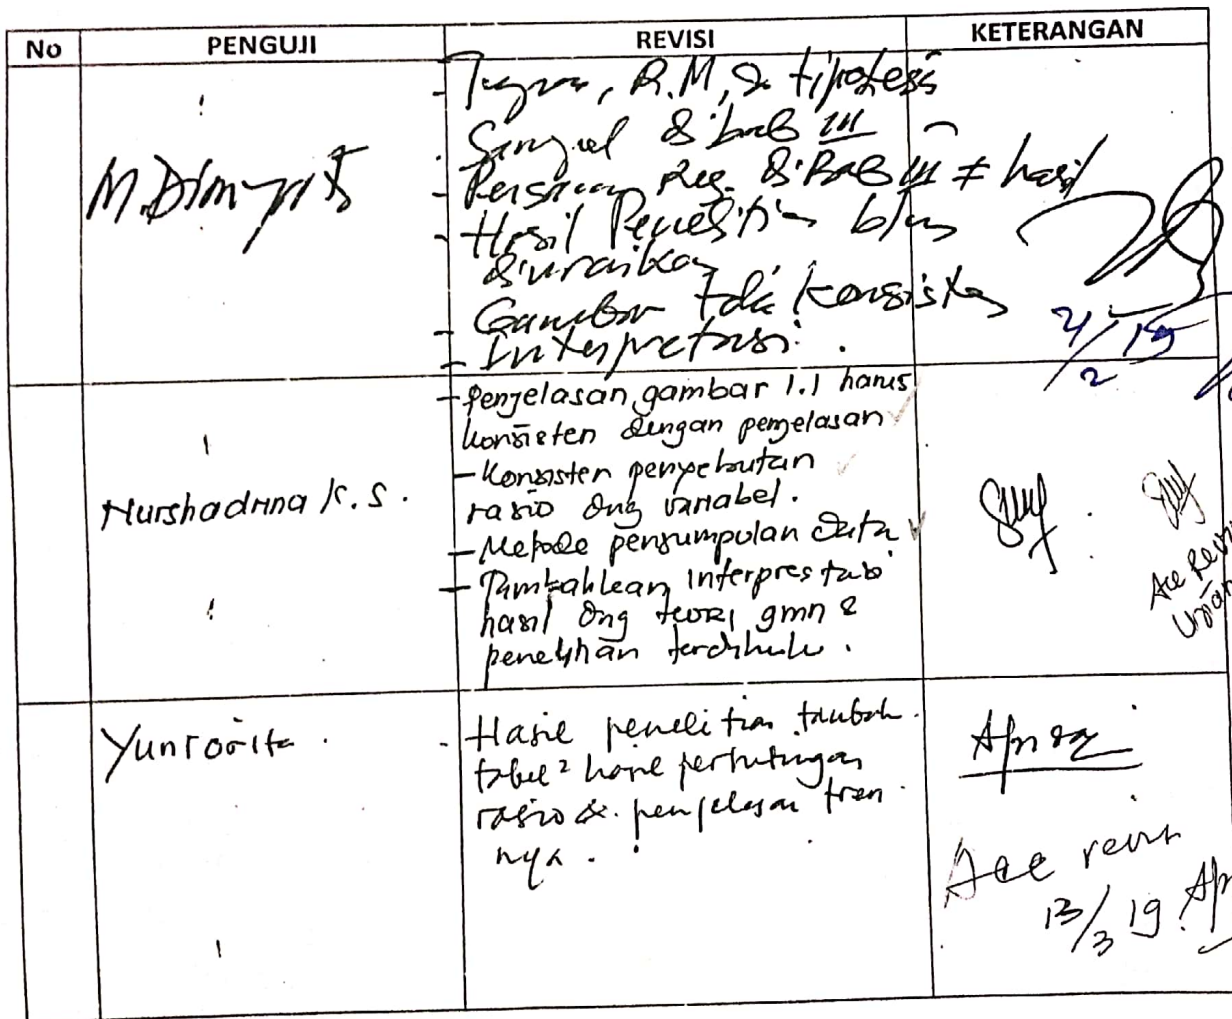 No PENGUJI REVISI KETERANGAN
- R.M, & Hipotesis
- Sampel di bab III
- Persamaan Reg. di Bab III ≠ hasil
- Hasil Penelitian blm
diuraikan
- Gambar tdk konsisten
- Interpretasi.
M. Dimyati
2/19
- Penjelasan gambar 1.1 harus
konsisten dengan penjelasan
- Konsisten penyebutan
rasio dng variabel.
- Metode pengumpulan data
- Tambahkan interprestasi
hasil dng teori gmn &
penelitian terdahulu.
Nurshadrina K.S.
Acc Revisi
Yuniorita
- Hasil penelitian tambah
tabel² hasil perhitungan
rasio & penjelasan tren
nya.
Acc revisi
13/3 19